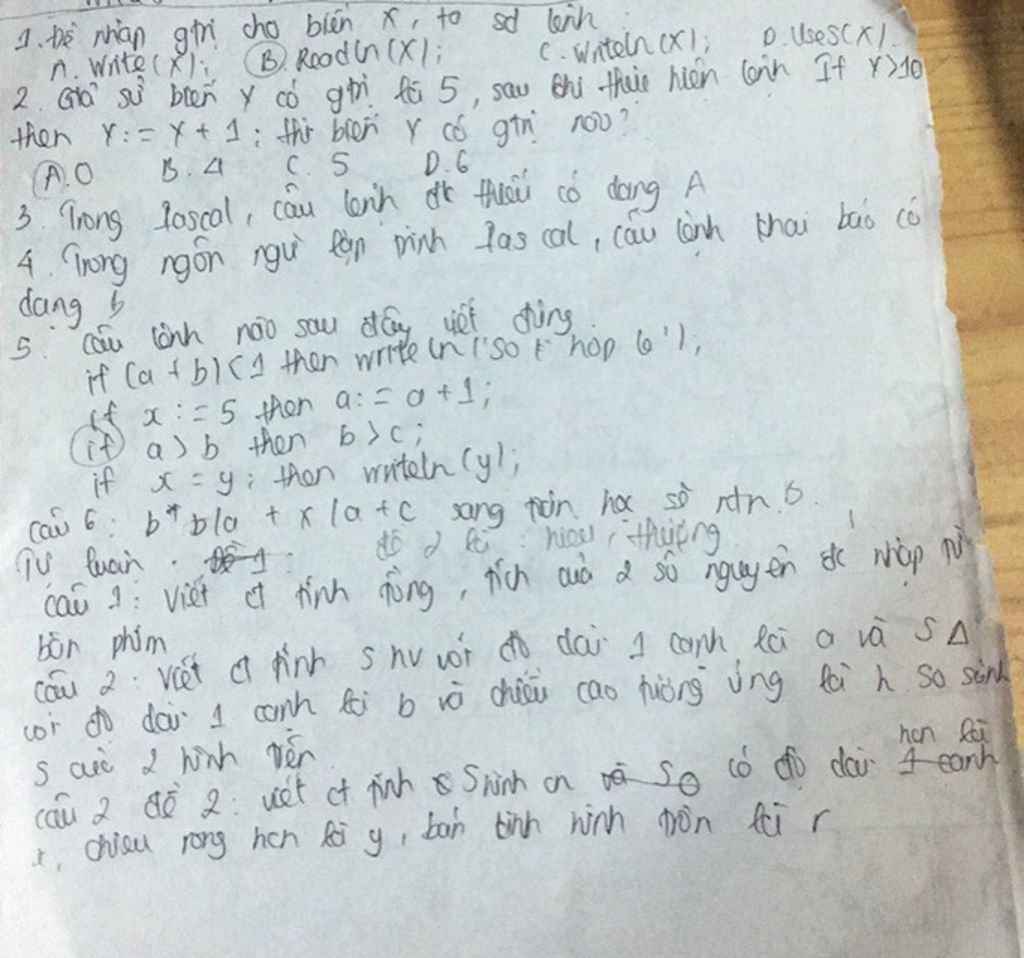 1. Để nhập gtrị cho biến X, ta sd lệnh
A. Write(X); B. Readln(X); C. Writeln(X); D. Uses(X).
2. Giả sử biến Y có gtrị là 5, sau khi thực hiện lệnh If Y>10
then Y:= Y + 1; thì biến Y có gtrị nào?
A. 0 B. 4 C. 5 D. 6
3. Trong Pascal, câu lệnh đk thiếu có dạng A
4. Trong ngôn ngữ lập trình Pascal, câu lệnh khai báo có
dạng b
5. Câu lệnh nào sau đây viết đúng
if (a + b)<1 then writeln ('So t hop le');
if x := 5 then a:= a + 1;
if a > b then b > c;
if x = y; then writeln (y);
câu 6: b* b/a + x/a + c sang toán học sẽ ntn. B.
Tự luận. Đề 1: đề 2 là: hiệu, thương
câu 1: Viết ct tính tổng, tích của 2 số nguyên đc nhập từ
bàn phím
câu 2: Viết ct tính S hv với độ dài 1 cạnh là a và S Δ
với độ dài 1 cạnh là b và chiều cao tương ứng là h. So sánh
S của 2 hình trên
hcn là
câu 2 đề 2: viết ct tính S hình cn và S có độ dài 1 cạnh
x, chiều rộng hcn là y, bán kính hình tròn là r